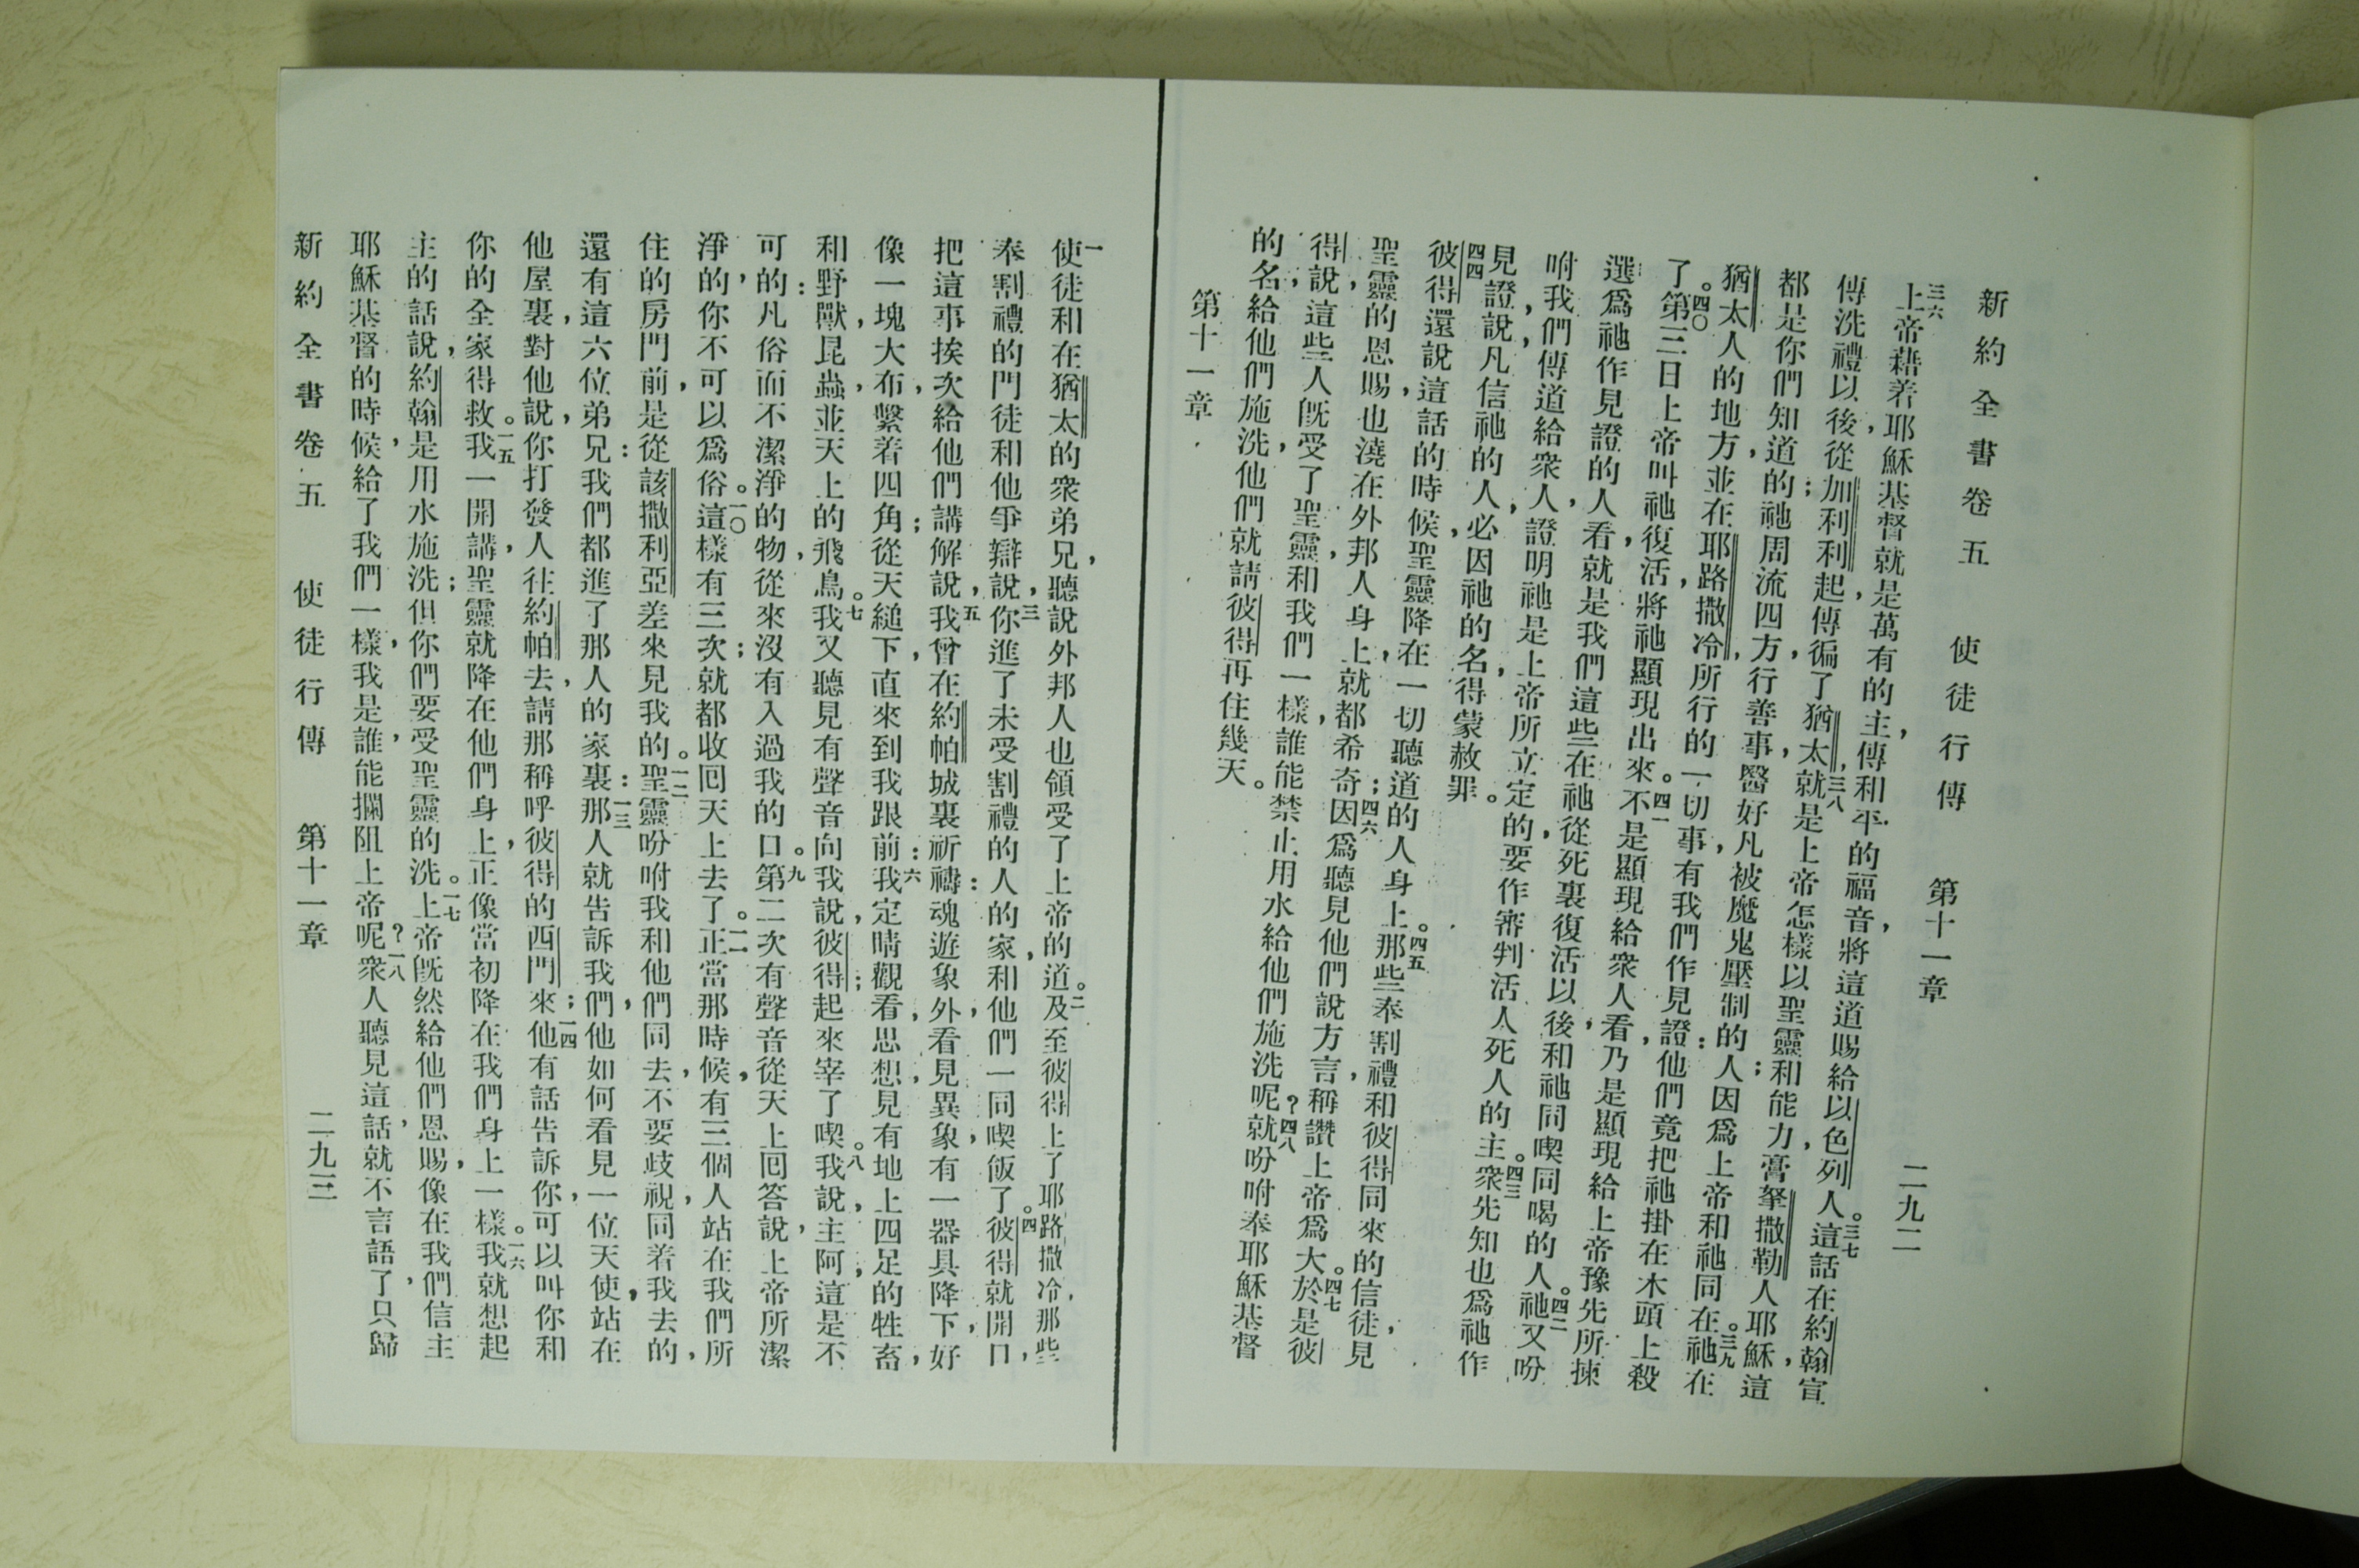 新約全書卷五 使徒行傳 第十一章 二九二
三六上帝藉着耶穌基督就是萬有的主，傳和平的福音，將這道賜給以色列人。三七這話在約翰宣
傳洗禮以後，從加利利起，傳徧了猶太，三八就是上帝怎樣以聖靈和能力，膏拏撒勒人耶穌，這
都是你們知道的；祂周流四方，行善事，醫好凡被魔鬼壓制的人；因爲上帝和祂同在。三九祂在
猶太人的地方，並在耶路撒冷，所行的一切事，有我們作見證：他們竟把祂掛在木頭上殺
了。四〇第三日上帝叫祂復活，將祂顯現出來。四一不是顯現給衆人看，乃是顯現給上帝豫先所揀
選爲祂作見證的人看，就是我們這些在祂從死裏復活以後，和祂同喫同喝的人。四二祂又吩
咐我們傳道給衆人，證明祂是上帝所立定的，要作審判活人死人的主。四三衆先知也爲祂作
見證，說，凡信祂的人，必因祂的名，得蒙赦罪。
四四彼得還說這話的時候，聖靈降在一切聽道的人身上。四五那些奉割禮和彼得同來的信徒，見
聖靈的恩賜，也澆在外邦人身上，就都希奇；四六因爲聽見他們說方言，稱讚上帝爲大。四七於是彼
得說，這些人旣受了聖靈，和我們一樣，誰能禁止用水給他們施洗呢？四八就吩咐奉耶穌基督
的名，給他們施洗，他們就請彼得再住幾天。
第十一章
一使徒和在猶太的衆弟兄，聽說外邦人也領受了上帝的道。二及至彼得上了耶路撒冷，那些
奉割禮的門徒和他爭辯說，三你進了未受割禮的人的家，和他們一同喫飯了。四彼得就開口，
把這事挨次給他們講解說，五我曾在約帕城裏祈禱：魂遊象外，看見異象，有一器具降下，好
像一塊大布，繫着四角；從天縋下，直來到我跟前：六我定睛觀看，思想，見有地上四足的牲畜，
和野獸，昆蟲，並天上的飛鳥。七我又聽見有聲音向我說，彼得；起來宰了喫。八我說，主阿，這是不
可：的凡俗而不潔淨的物，從來沒有入過我的口。九第二次有聲音從天上回答說，上帝所潔
淨的，你不可以爲俗。一〇這樣有三次；就都收回天上去了。一一正當那時候，有三個人站在我們所
住的房門前，是從該撒利亞差來見我的。一二聖靈吩咐我和他們同去，不要歧視，同着我去的，
還有這六位弟兄：我們都進了那人的家裏：一三那人就告訴我們，他如何看見一位天使，站在
他屋裏，對他說，你打發人往約帕去，請那稱呼彼得的西門來；一四他有話告訴你，可以叫你和
你的全家得救。一五我一開講，聖靈就降在他們身上，正像當初降在我們身上一樣。一六我就想起
主的話說，約翰是用水施洗；但你們要受聖靈的洗。一七上帝旣然給他們恩賜，像在我們信主
耶穌基督的時候，給了我們一樣，我是誰，能攔阻上帝呢？一八衆人聽見這話，就不言語了，只歸
新約全書卷五 使徒行傳 第十一章 二九三